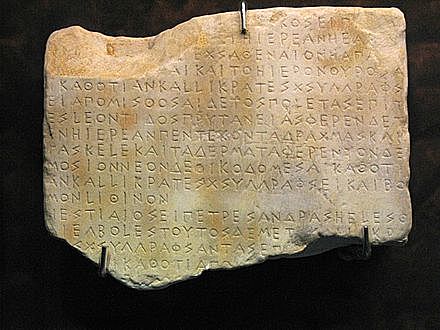 ΚΟΣΕΙΠ
ΗΙΕΡΕΑΝΗΕ
ΕΧΣΑΘΕΝΑΙΟΝΗΑΠΑ
ΑΙΚΑΙΤΟΗΙΕΡΟΝΘΥΡΟΣΑ
ΙΚΑΘΟΤΙΑΝΚΑΛΛΙΚΡΑΤΕΣΧΣΥΓΓΡΑΦΣ
ΕΙΑΠΟΜΙΣΘΟΣΑΙΔΕΤΟΣΠΟΛΕΤΑΣΕΠΙΤ
ΕΣΛΕΟΝΤΙΔΟΣΠΡΥΤΑΝΕΙΑΣΦΕΡΕΝΔΕΤ
ΕΝΗΙΕΡΕΑΝΠΕΝΤΕΚΟΝΤΑΔΡΑΧΜΑΣΚΑΙ
ΤΑΣΚΕΛΕΚΑΙΤΑΔΕΡΜΑΤΑΦΕΡΕΝΤΟΝΔΕ
ΜΟΣΙΟΝΝΕΟΝΔΕΟΙΚΟΔΟΜΕΣΑΙΚΑΘΟΤΙ
ΑΝΚΑΛΛΙΚΡΑΤΕΣΧΣΥΓΓΡΑΦΣΕΙΚΑΙΒΟ
ΜΟΝΛΙΘΙΝΟΝ
ΗΕΣΤΙΑΙΟΣΕΙΠΕΤΡΕΣΑΝΔΡΑΣΗΕΛΕΣΘ
ΑΙΕΓΒΟΛΕΣΤΟΥΤΟΣΔΕΜΕΤ ΛΛΙΚΡ
ΣΧΣΥΓΓΡΑΦΣΑΝΤΑΣΕΠ
ΙΚΑΘΟΤΙΑΠ